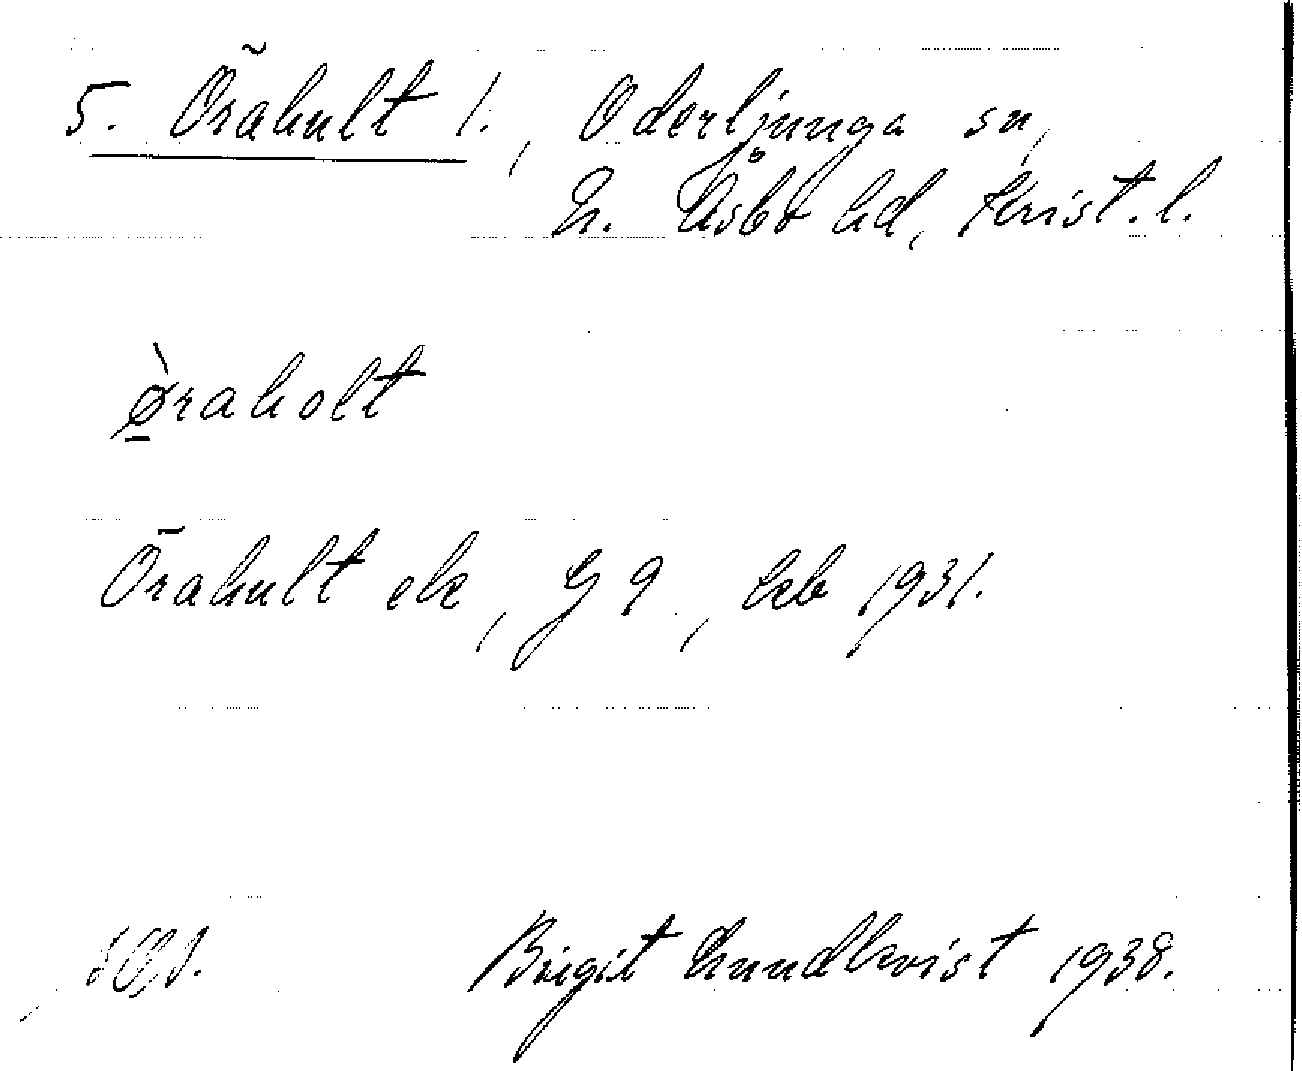 5. Örahult 1., Oderljunga sn,
N. Åsbo hd, Krist. l.
ø̀raholt
Örahult ek, G 9, kb 1931.
Birgit Lundkvist 1938.